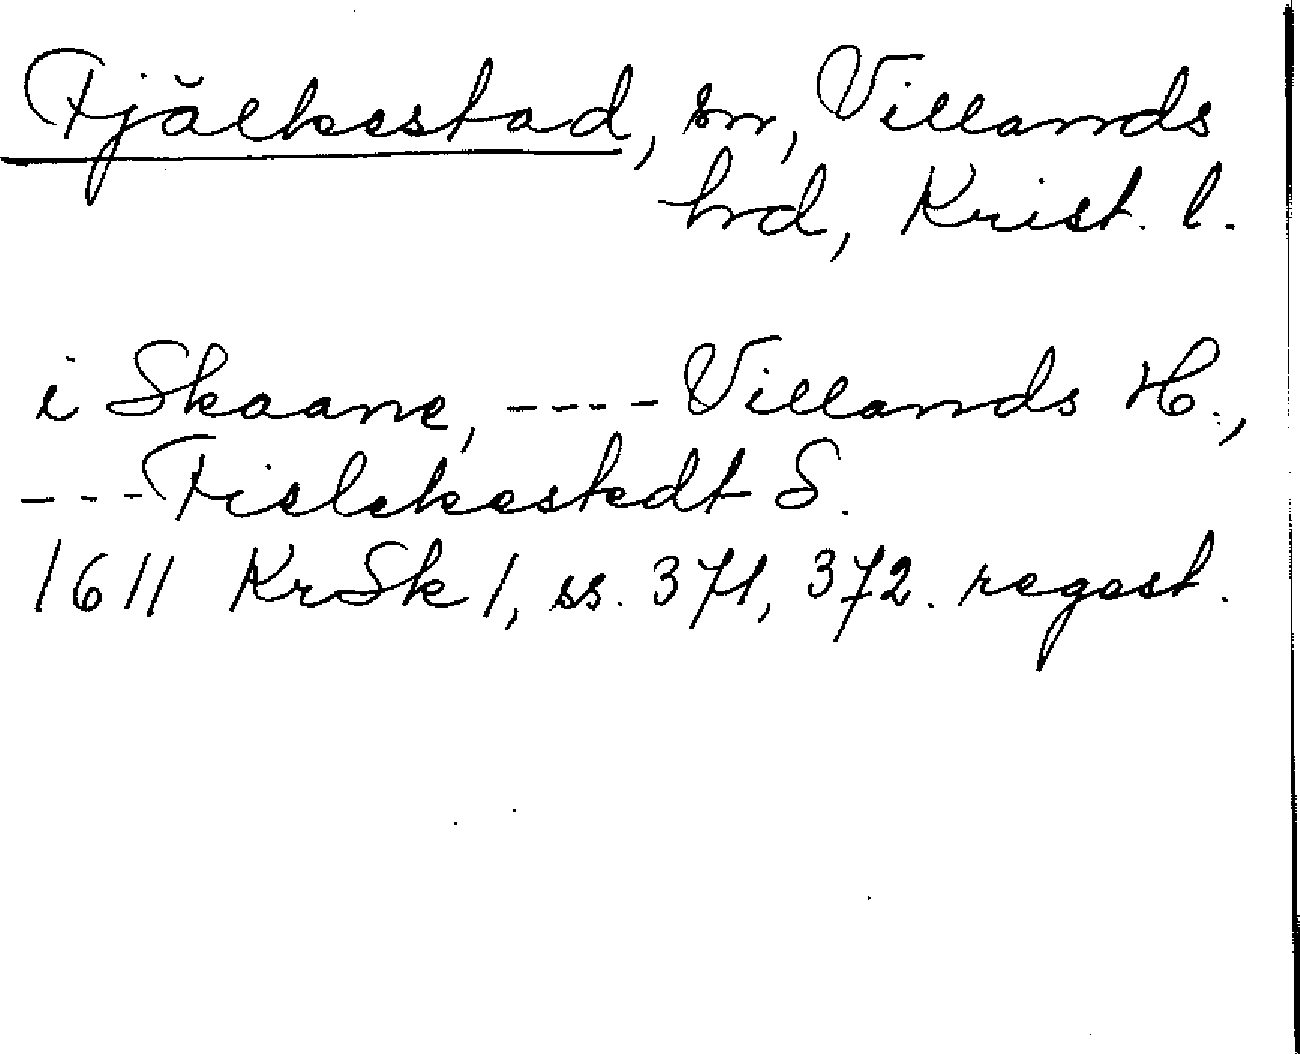 Fjälkestad, sn, Villands
hrd, Krist. l.
i Skaane, ---- Villands H.,
--- Fielckestedt S.
1611 KrSk 1, ss. 371, 372. regest.